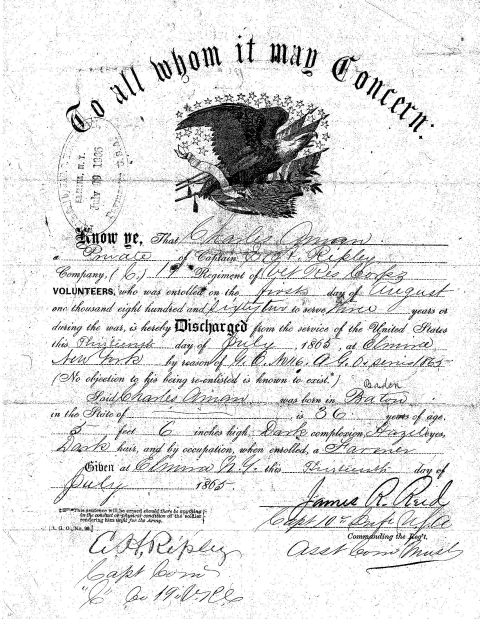 To all whom it may Concern:
ELMIRA, N.Y.
July 1865
Know ye, That Charles Aman
a Private of Captain A. H. Ripley
Company, (C,) 19th Regiment of Vet Res Corps
VOLUNTEERS, who was enrolled on the first day of August
one thousand eight hundred and sixty two to serve three years or
during the war, is hereby Discharged from the service of the United States
this Thirteenth day of July, 1865, at Elmira
New York by reason of G. O. No 116. A. G. O. series 1865
(No objection to his being re-enlisted is known to exist.)
Baden
Said Charles Aman was born in Baton
in the State of is 36 years of age,
5 feet 6 inches high, Dark complexion, Hazel eyes,
Dark hair, and by occupation, when enrolled, a Farmer
Given at Elmira N.Y. this Thirteenth day of
July 1865
This sentence will be erased should there be anything
in the conduct or physical condition of the soldier
rendering him unfit for the Army.
[A. G. O., No. 99.]
James R. Reid
Capt 10" Inf U.S.A
Commanding the Reg't.
Asst Com Must
A. H. Ripley
Capt Com
"C" Co 19" V.R.C